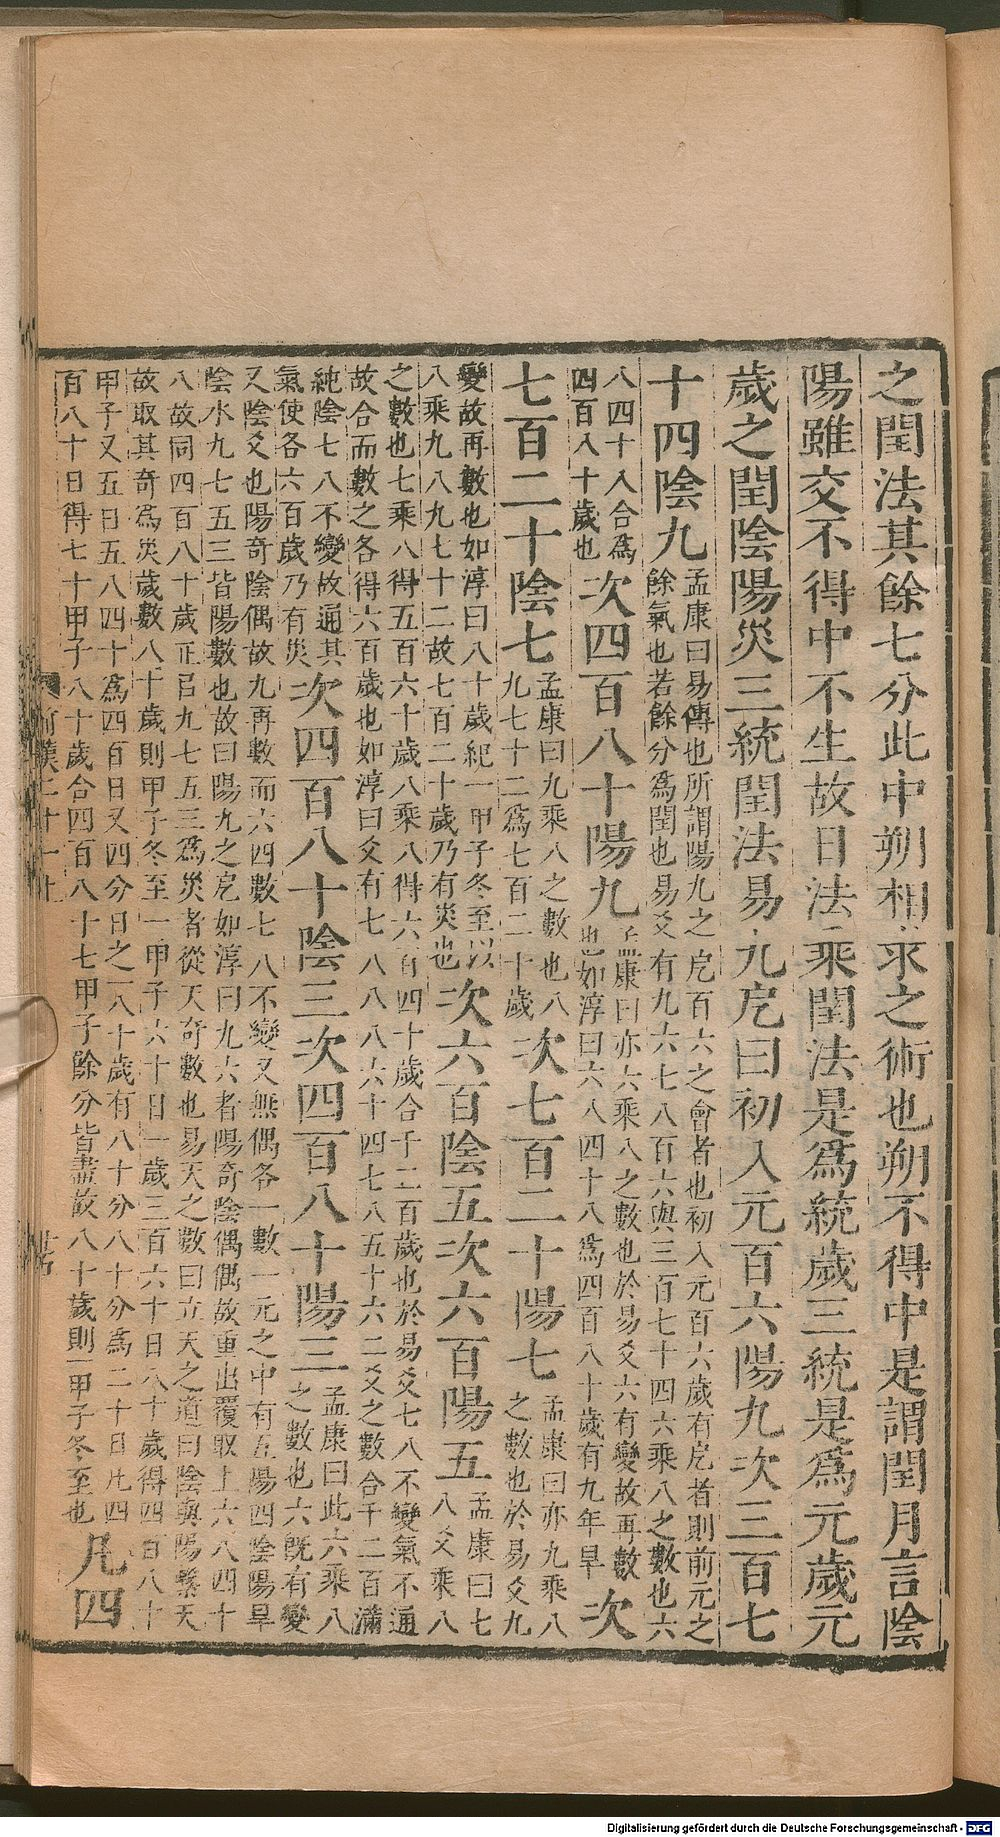 之閏法其餘七分此中朔相求之術也朔不得中是謂閏月言陰
陽雖交不得中不生故日法乘閏法是爲統歲三統是爲元歲元
歲之閏陰陽災三統閏法易九戹曰初入元百六陽九次三百七
十四陰九孟康曰易傳也所謂陽九之戹百六之會者也初入元百六歲有戹者則前元之
餘氣也若餘分爲閏也易爻有九六七八百六與三百七十四六乘八之數也六
八四十八合爲
四百八十歲也次四百八十陽九孟康曰亦六乘八之數也於易爻六有變故再數
也如淳曰六八四十八爲四百八十歲有九年旱次
七百二十陰七孟康曰九乘八之數也八
九七十二爲七百二十歲次七百二十陽七孟康曰亦九乘八
之數也於易爻九
變故再數也如淳曰八十歲紀一甲子冬至以
八乘九八九七十二故七百二十歲乃有災也次六百陰五次六百陽五孟康曰七
八爻乘八
之數也七乘八得五百六十歲八乘八得六百四十歲合千二百歲也於易爻七八不變氣不通
故合而數之各得六百歲也如淳曰爻有七八八八六十四七八五十六二爻之數合千二百滿
純陰七八不變故通其
氣使各六百歲乃有災次四百八十陰三次四百八十陽三孟康曰此六乘八
之數也六既有變
又陰爻也陽奇陰偶故九再數而六四數七八不變又無偶各一數一元之中有五陽四陰陽旱
陰水九七五三皆陽數也故曰陽九之戹如淳曰九六者陽奇陰偶偶故重出覆取上六八四十
八故同四百八十歲正以九七五三爲災者從天奇數也易天之數曰立天之道曰陰與陽繫天
故取其奇爲災歲數八十歲則甲子冬至一甲子六十日一歲三百六十日八十歲得四百八十
甲子又五日五八四十爲四百日又四分日之一八十歲有八十分八十分爲二十日凡四
百八十日得七十甲子八十歲合四百八十七甲子餘分皆盡故八十歲則一甲子冬至也凡四
前漢二十一上
Digitalisierung gefördert durch die Deutsche Forschungsgemeinschaft - DFG